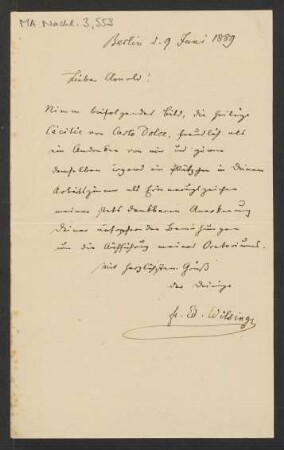 MA Nachl. 3,553
Berlin d. 9 Juni 1889
Lieber Arnold!
Nimm beifolgendes Bild, die heilige
Cäcilie von Carlo Dolce, freundlich als
ein Andenken von mir und gönne
demselben irgend ein Plätzchen in Deinem
Arbeitszimmer als Erinnerungszeichen
meiner stets dankbaren Anerkennung
Deiner aufopfernden Bemühungen
um die Aufführung meines Oratoriums.
Mit herzlichstem Gruß
der Deinige
Fr. Ed. Wilsing